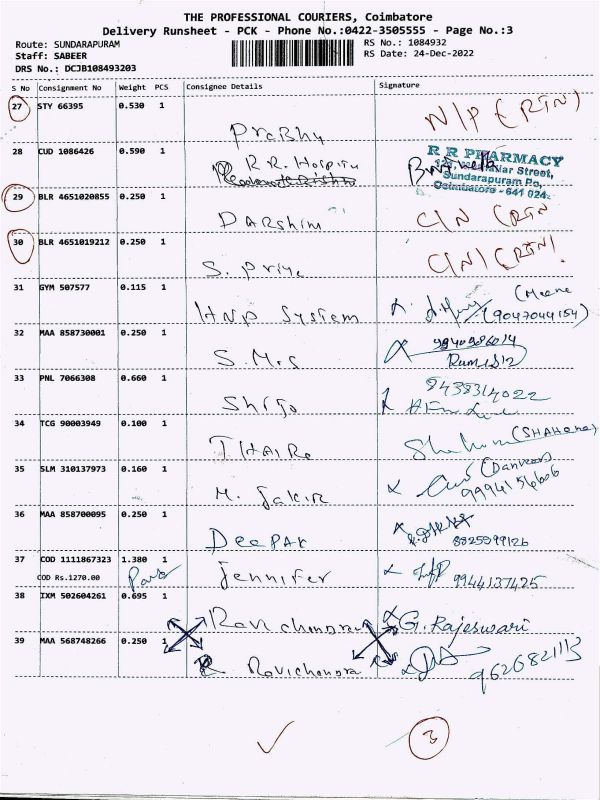 THE PROFESSIONAL COURIERS, Coimbatore
Delivery Runsheet - PCK - Phone No.:0422-3505555 - Page No.:3
Route: SUNDARAPURAM
RS No.: 1084932
Staff: SABEER
RS Date: 24-Dec-2022
DRS No.: DCJB108493203
S No Consignment No Weight PCS Consignee Details Signature
27 STY 66395 0.530 1 Prabhu N/P (RTN)
28 CUD 1086426 0.590 1 R.R. Hospital
R R PHARMACY
Street,
Sundarapuram Po,
Coimbatore - 641 024.
29 BLR 4651020855 0.250 1 DARShini C/N (RTN
30 BLR 4651019212 0.250 1 S. Priya C/N) (RTN)
31 GYM 507577 0.115 1 HNP System (Meena
(9047044154)
32 MAA 858730001 0.250 1 S.M.S
33 PNL 7066308 0.660 1 Shijo 9438314022
34 TCG 90003949 0.100 1 (SHAHANA)
35 SLM 310137973 0.160 1 M. Jakir
36 MAA 858700095 0.250 1 DeePAK 8825999126
37 COD 1111867323 1.380 1 Jennifer 9944137425
COD Rs.1270.00
38 IXM 502604261 0.695 1 Ravichandran G. Rajeswari
39 MAA 568748266 0.250 1 Ravichandra 9626821113
3